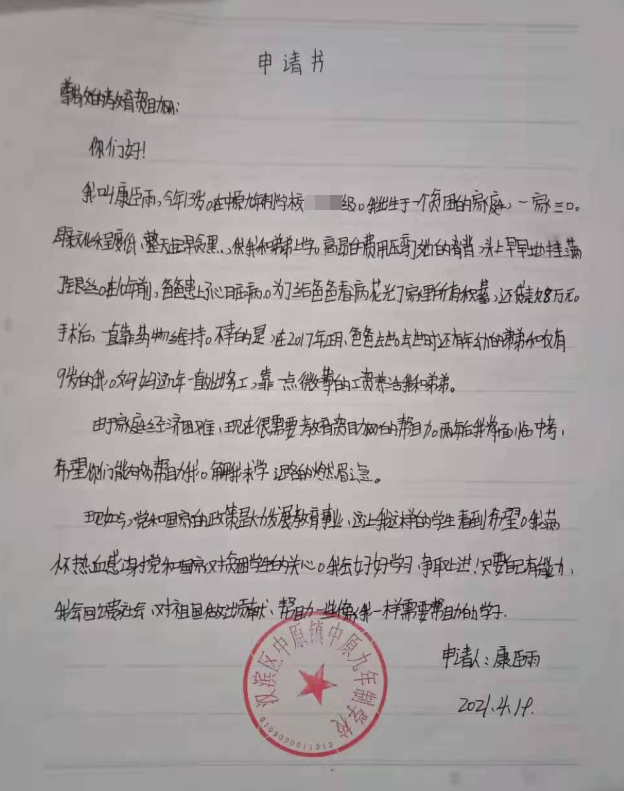 申请书
尊敬的教育资助网:
你们好!
我叫康臣雨,今年13岁。在中原九年制学校 级。我出生于一个贫困的家庭,一家三口。
文化程度低,整天起早贪黑,供我和弟弟上学。高昂的费用压弯了她的脊背,头上早早地挂满
了银丝。在 年前,爸爸患上心脏病。为了给爸爸看病花光了家里所有积蓄,还贷款8万元。
手术后,一直靠药物维持。不幸的是,在2017年正月,爸爸去世。去世时还有年幼的弟弟和仅有
9岁的我。妈妈近几年一直外出务工,靠一点微薄的工资养活我和弟弟。
由于家庭经济困难,现在很需要教育资助网的帮助。两年后我将面临中考,
希望你们能有效帮助我。解我求学 的燃眉之急。
现如今,党和国家的政策是大力发展教育事业,这让我这样的学生看到希望。我满
怀热血感谢党和国家对贫困学生的关心。我会好好学习,争取上进!只要自己有能力,
我会回馈社会,对祖国做出贡献,帮助一些像我一样需要帮助的学子.
申请人:康臣雨
2021.4.19.
汉滨区中原镇中原九年制学校